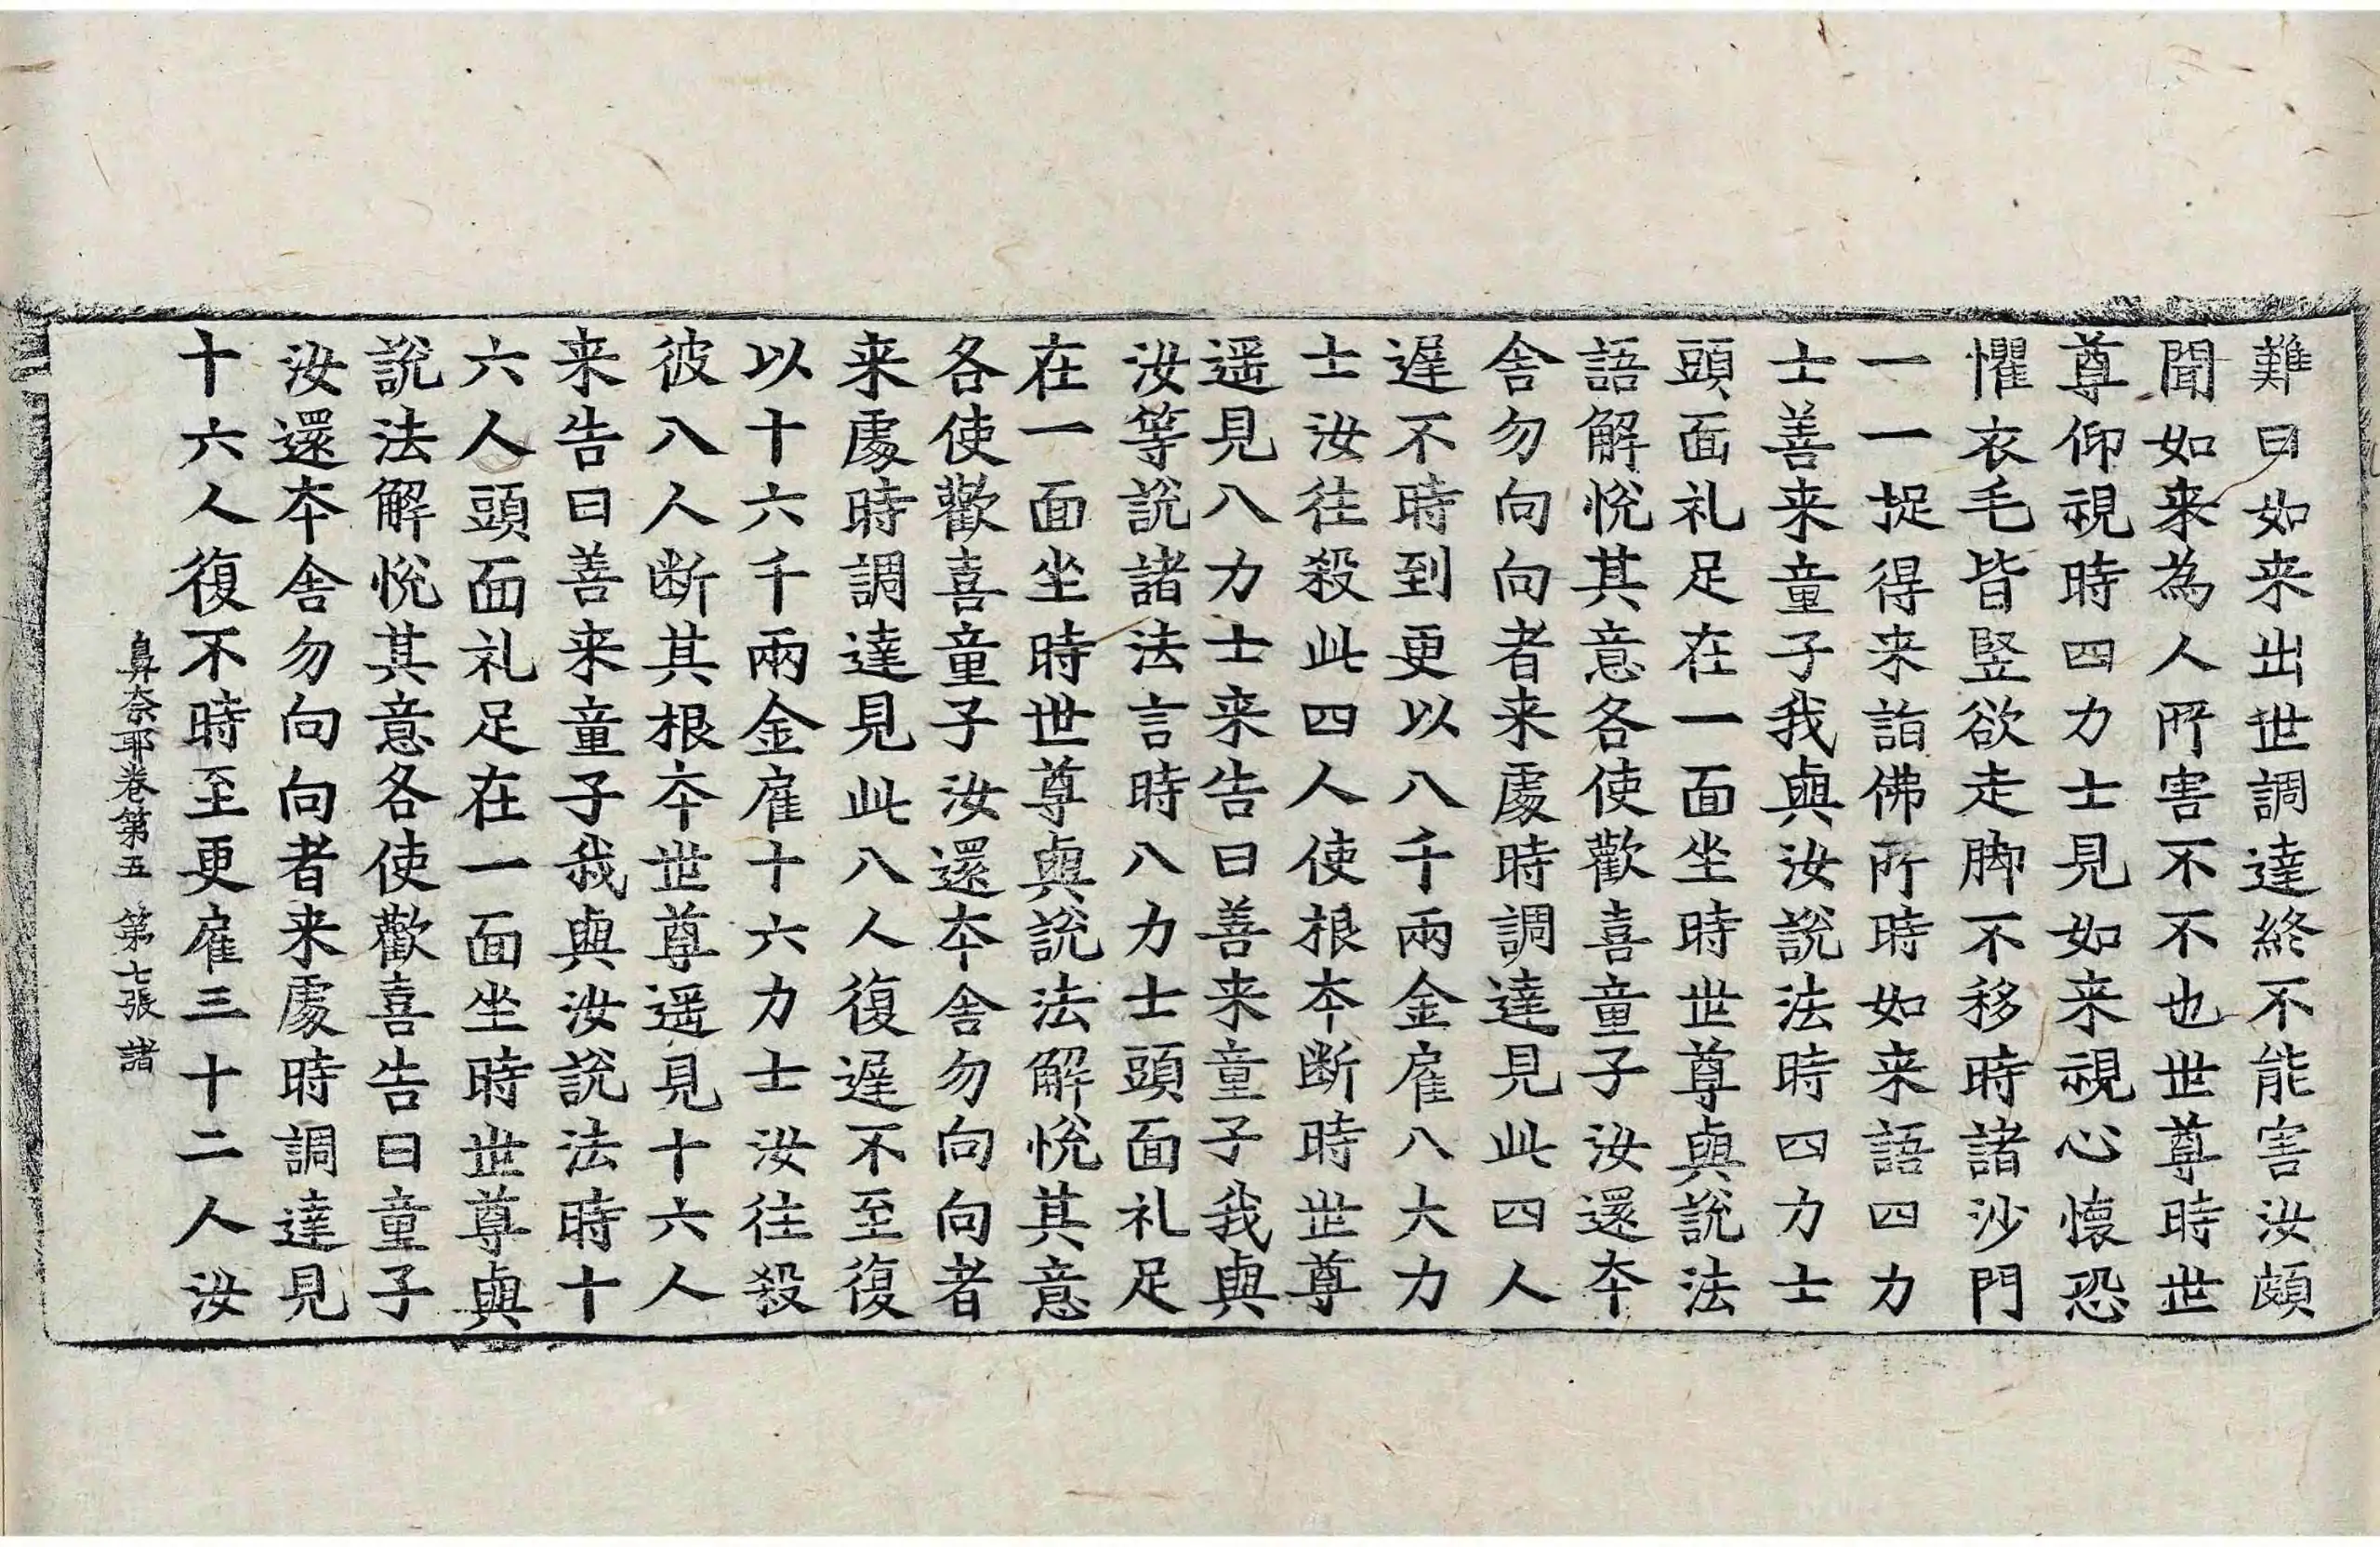 難曰如来出世調達終不能害汝頗
聞如来為人所害不不也世尊時世
尊仰視時四力士見如来視心懷恐
懼衣毛皆竪欲走脚不移時諸沙門
一一捉得来詣佛所時如来語四力
士善来童子我與汝說法時四力士
頭面礼足在一面坐時世尊與說法
語解悅其意各使歡喜童子汝還本
舍勿向向者来處時調達見此四人
遲不時到更以八千兩金雇八大力
士汝往殺此四人使根本断時世尊
遥見八力士来告曰善来童子我與
汝等說諸法言時八力士頭面礼足
在一面坐時世尊與說法解悅其意
各使歡喜童子汝還本舍勿向向者
来處時調達見此八人復遲不至復
以十六千兩金雇十六力士汝往殺
彼八人断其根本世尊遥見十六人
来告曰善来童子我與汝說法時十
六人頭面礼足在一面坐時世尊與
說法解悅其意各使歡喜告曰童子
汝還本舍勿向向者来處時調達見
十六人復不時至更雇三十二人汝
鼻奈耶卷第五 第七張 諸